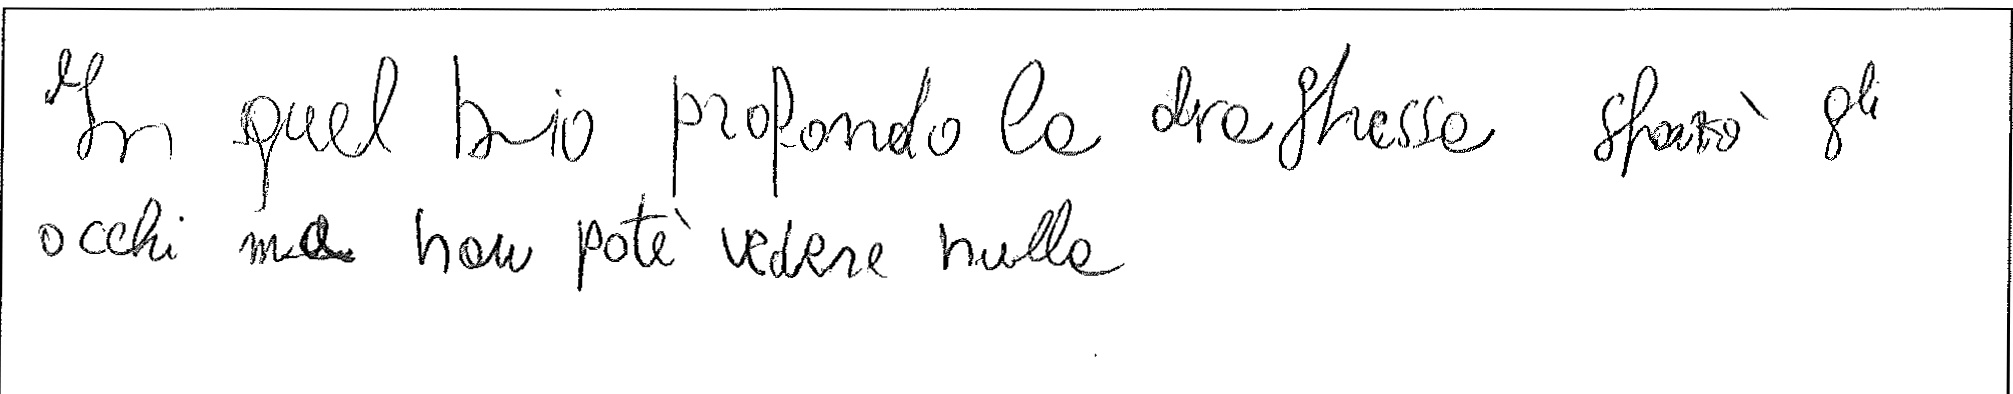 In quel buio profondo la draghessa sparò gli
occhi ma non potè vedere nulla